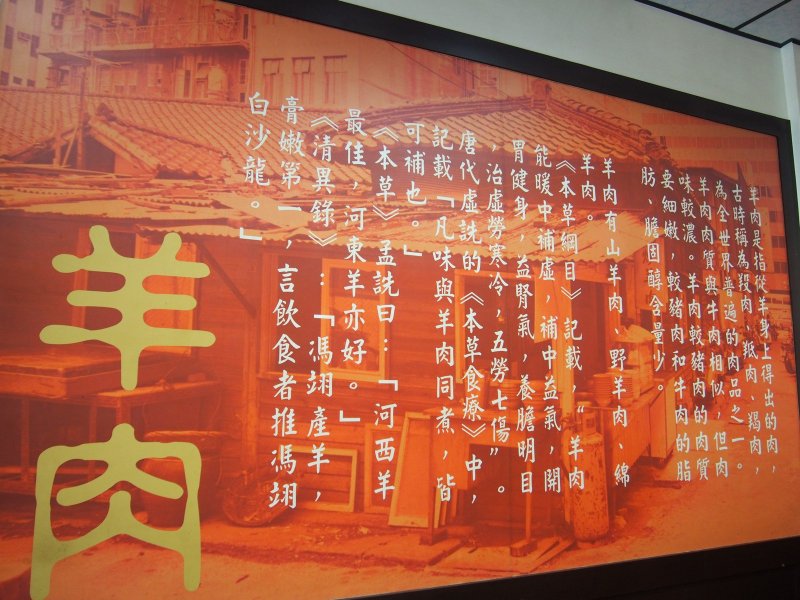 羊肉是指從羊身上得出的肉，
古時稱為羖肉、羝肉、羯肉，
為全世界普遍的肉品之一。
羊肉肉質與牛肉相似，但肉
味較濃。羊肉較豬肉的肉質
要細嫩，較豬肉和牛肉的脂
肪、膽固醇含量少。
羊肉有山羊肉、野羊肉、綿
羊肉。
《本草綱目》記載，“羊肉
能暖中補虛，補中益氣，開
胃健身，益腎氣，養膽明目
，治虛勞寒冷，五勞七傷”。
唐代虛詵的《本草食療》中，
記載「凡味與羊肉同煮，皆
可補也。」
《本草》孟詵曰：「河西羊
最佳，河東羊亦好。」
《清異錄》：「馮翊產羊，
膏嫩第一，言飲食者推馮翊
白沙龍。」
羊肉